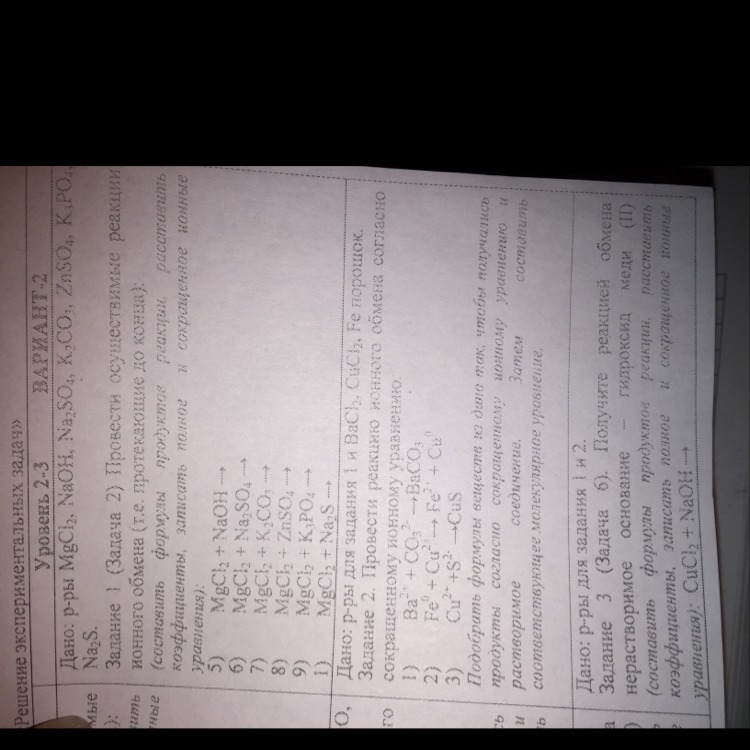 Решение экспериментальных задач»
Уровень 2-3 ВАРИАНТ-2
Дано: р-ры MgCl₂, NaOH, Na₂SO₄, K₂CO₃, ZnSO₄, K₃PO₄,
Na₂S.
Задание 1 (Задача 2) Провести осуществимые реакции
ионного обмена (т.е. протекающие до конца):
(составить формулы продуктов реакции, расставить
коэффициенты, записать полное и сокращенное ионные
уравнения):
5) MgCl₂ + NaOH →
6) MgCl₂ + Na₂SO₄ →
7) MgCl₂ + K₂CO₃ →
8) MgCl₂ + ZnSO₄ →
9) MgCl₂ + K₃PO₄ →
1) MgCl₂ + Na₂S →
Дано: р-ры для задания 1 и BaCl₂, CuCl₂, Fe порошок.
Задание 2. Провести реакцию ионного обмена согласно
сокращенному ионному уравнению.
1) Ba²⁺ + CO₃²⁻ → BaCO₃
2) Fe⁰ + Cu²⁺ → Fe²⁺ + Cu⁰
3) Cu²⁺ +S²⁻ → CuS
Подобрать формулы веществ из дано так, чтобы получались
продукты согласно сокращенному ионному уравнению и
растворимое соединение. Затем составить
соответствующее молекулярное уравнение.
Дано: р-ры для задания 1 и 2.
Задание 3 (Задача 6). Получите реакцией обмена
нерастворимое основание – гидроксид меди (II)
(составить формулы продуктов реакции, расставить
коэффициенты, записать полное и сокращенное ионные
уравнения): CuCl₂ + NaOH →